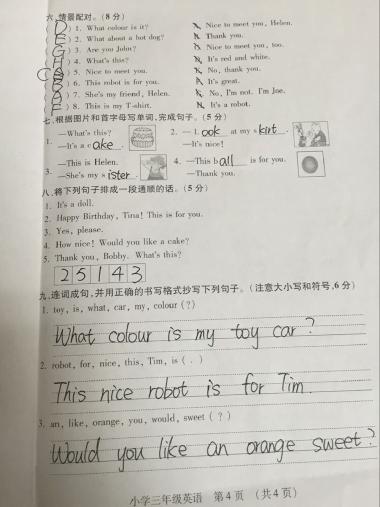 六、情景配对。(8分)
( D ) 1. What colour is it? A. Nice to meet you, Helen.
( E ) 2. What about a hot dog? B. Thank you.
( G ) 3. Are you John? C. Nice to meet you, too.
( H ) 4. What's this? D. It's red and white.
( C ) 5. Nice to meet you. E. No, thank you.
( B ) 6. This robot is for you. F. It's great.
( A ) 7. She's my friend, Helen. G. No, I'm not. I'm Joe.
( F ) 8. This is my T-shirt. H. It's a robot.
七、根据图片和首字母写单词,完成句子。(5分)
1. —What's this? 2. — Look at my skirt.
—It's a cake. —It's nice!
3. —This is Helen. 4. —This ball is for you.
—She's my sister. —Thank you.
八、将下列句子排成一段通顺的话。(5分)
1. It's a doll.
2. Happy Birthday, Tina! This is for you.
3. Yes, please.
4. How nice! Would you like a cake?
5. Thank you, Bobby. What's this?
2 5 1 4 3
九、连词成句,并用正确的书写格式抄写下列句子。(注意大小写和符号,6分)
1. toy, is, what, car, my, colour (?)
What colour is my toy car?
2. robot, for, nice, this, Tim, is (.)
This nice robot is for Tim.
3. an, like, orange, you, would, sweet (?)
Would you like an orange sweet?
小学三年级英语 第4页 (共4页)